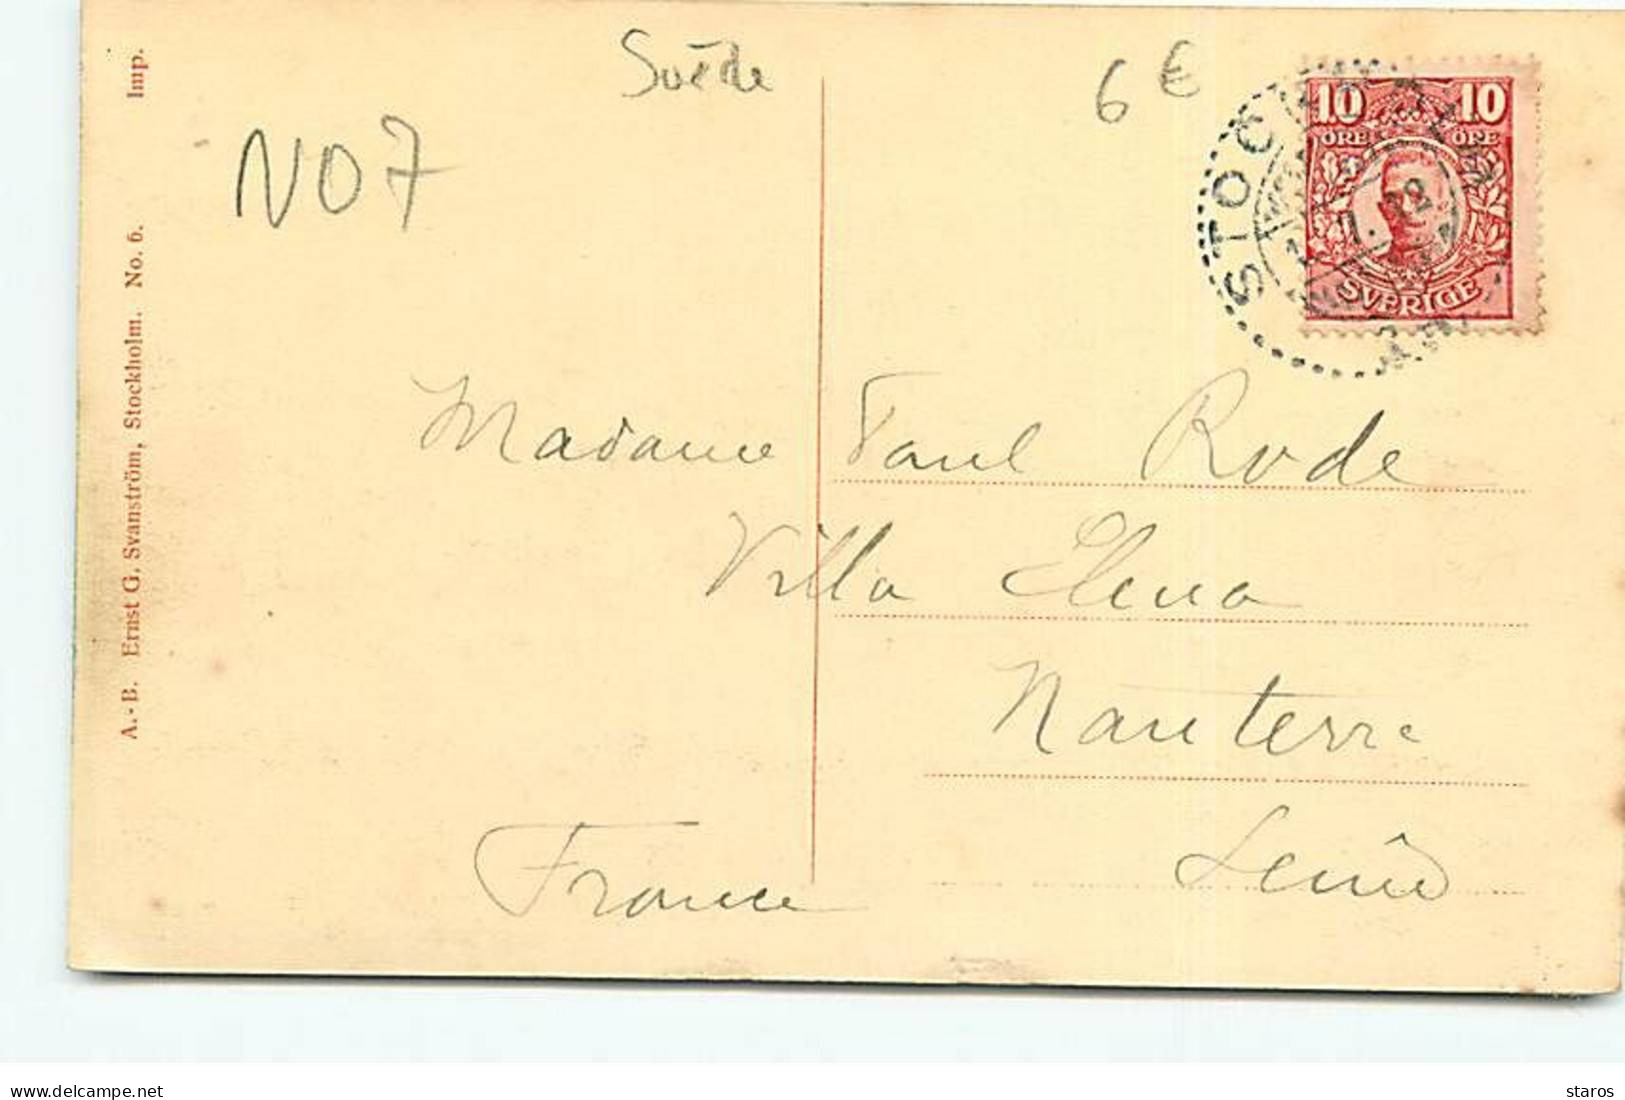 Suède
6 €
NO7
10 10
ÖRE ÖRE
SVERIGE
STOCK
Madame Paul Rode
Villa Elena
Nanterre
Seine
France
A.-B. Ernst G. Svanström, Stockholm. No. 6. Imp.
delcampe.net
staros